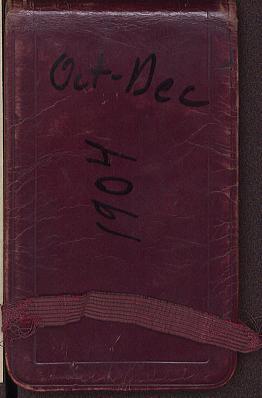 Oct-Dec
1904